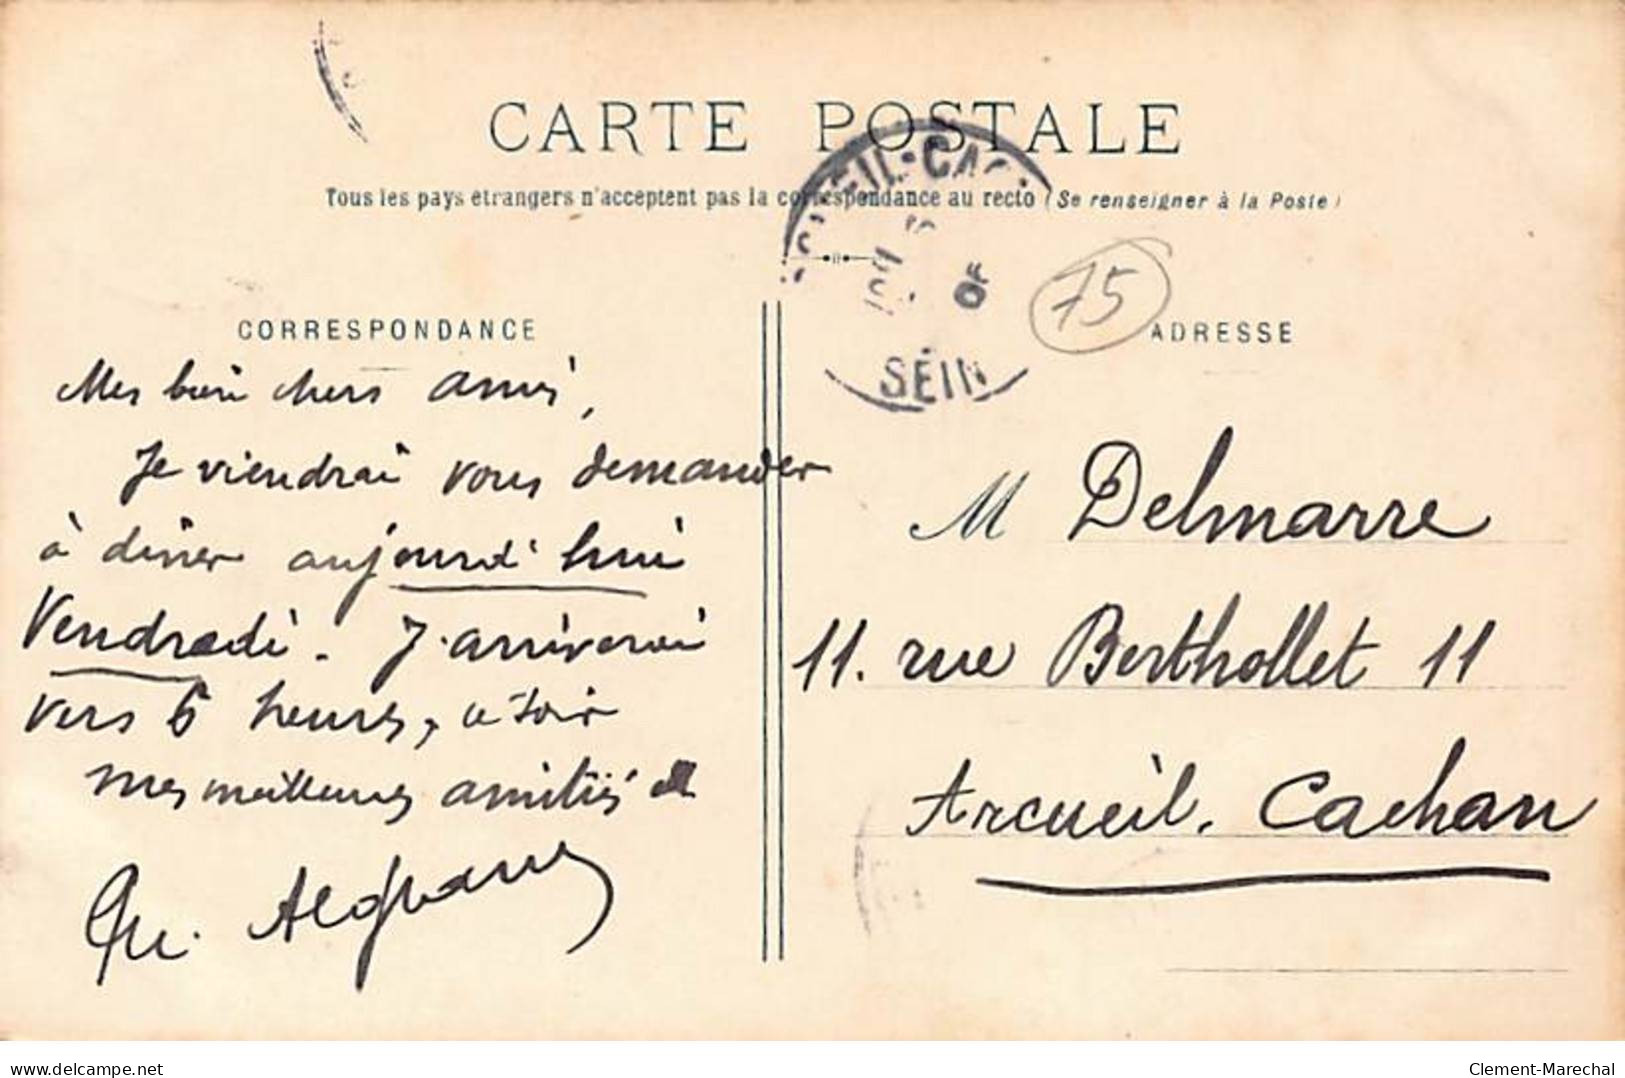 CARTE POSTALE
Tous les pays étrangers n'acceptent pas la correspondance au recto (Se renseigner à la Poste)
SEIN
OF
75
CORRESPONDANCE
Mes bien chers amis,
Je viendrai vous demander
à diner aujourd'hui
Vendredi. J'arriverai
vers 6 heures, ce soir
mes meilleures amitiés
ADRESSE
M Delmarre
11. rue Berthollet 11
Arcueil. Cachan
delcampe.net
Clement-Marechal